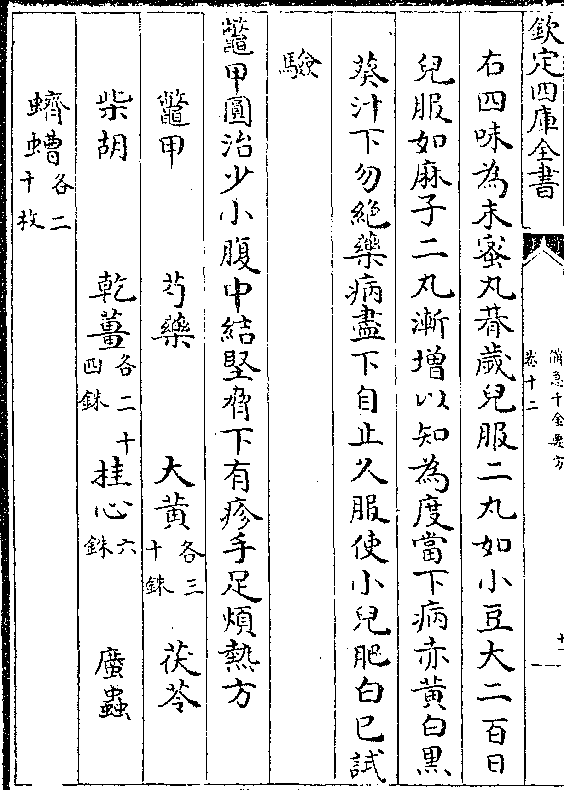 欽定四庫全書
備急千金要方
卷十二
十一
右四味為末蜜丸朞歲兒服二丸如小豆大二百日
兒服如麻子二丸漸增以知為度當下病赤黃白黑
葵汁下勿絶藥病盡下自止久服使小兒肥白已試
驗
鼈甲圓治少小腹中結堅脅下有疹手足煩熱方
鼈甲 芍藥 大黃各三十銖 茯苓
柴胡 乾薑各二十四銖 桂心六銖 䗪蟲
蠐螬各二十枚